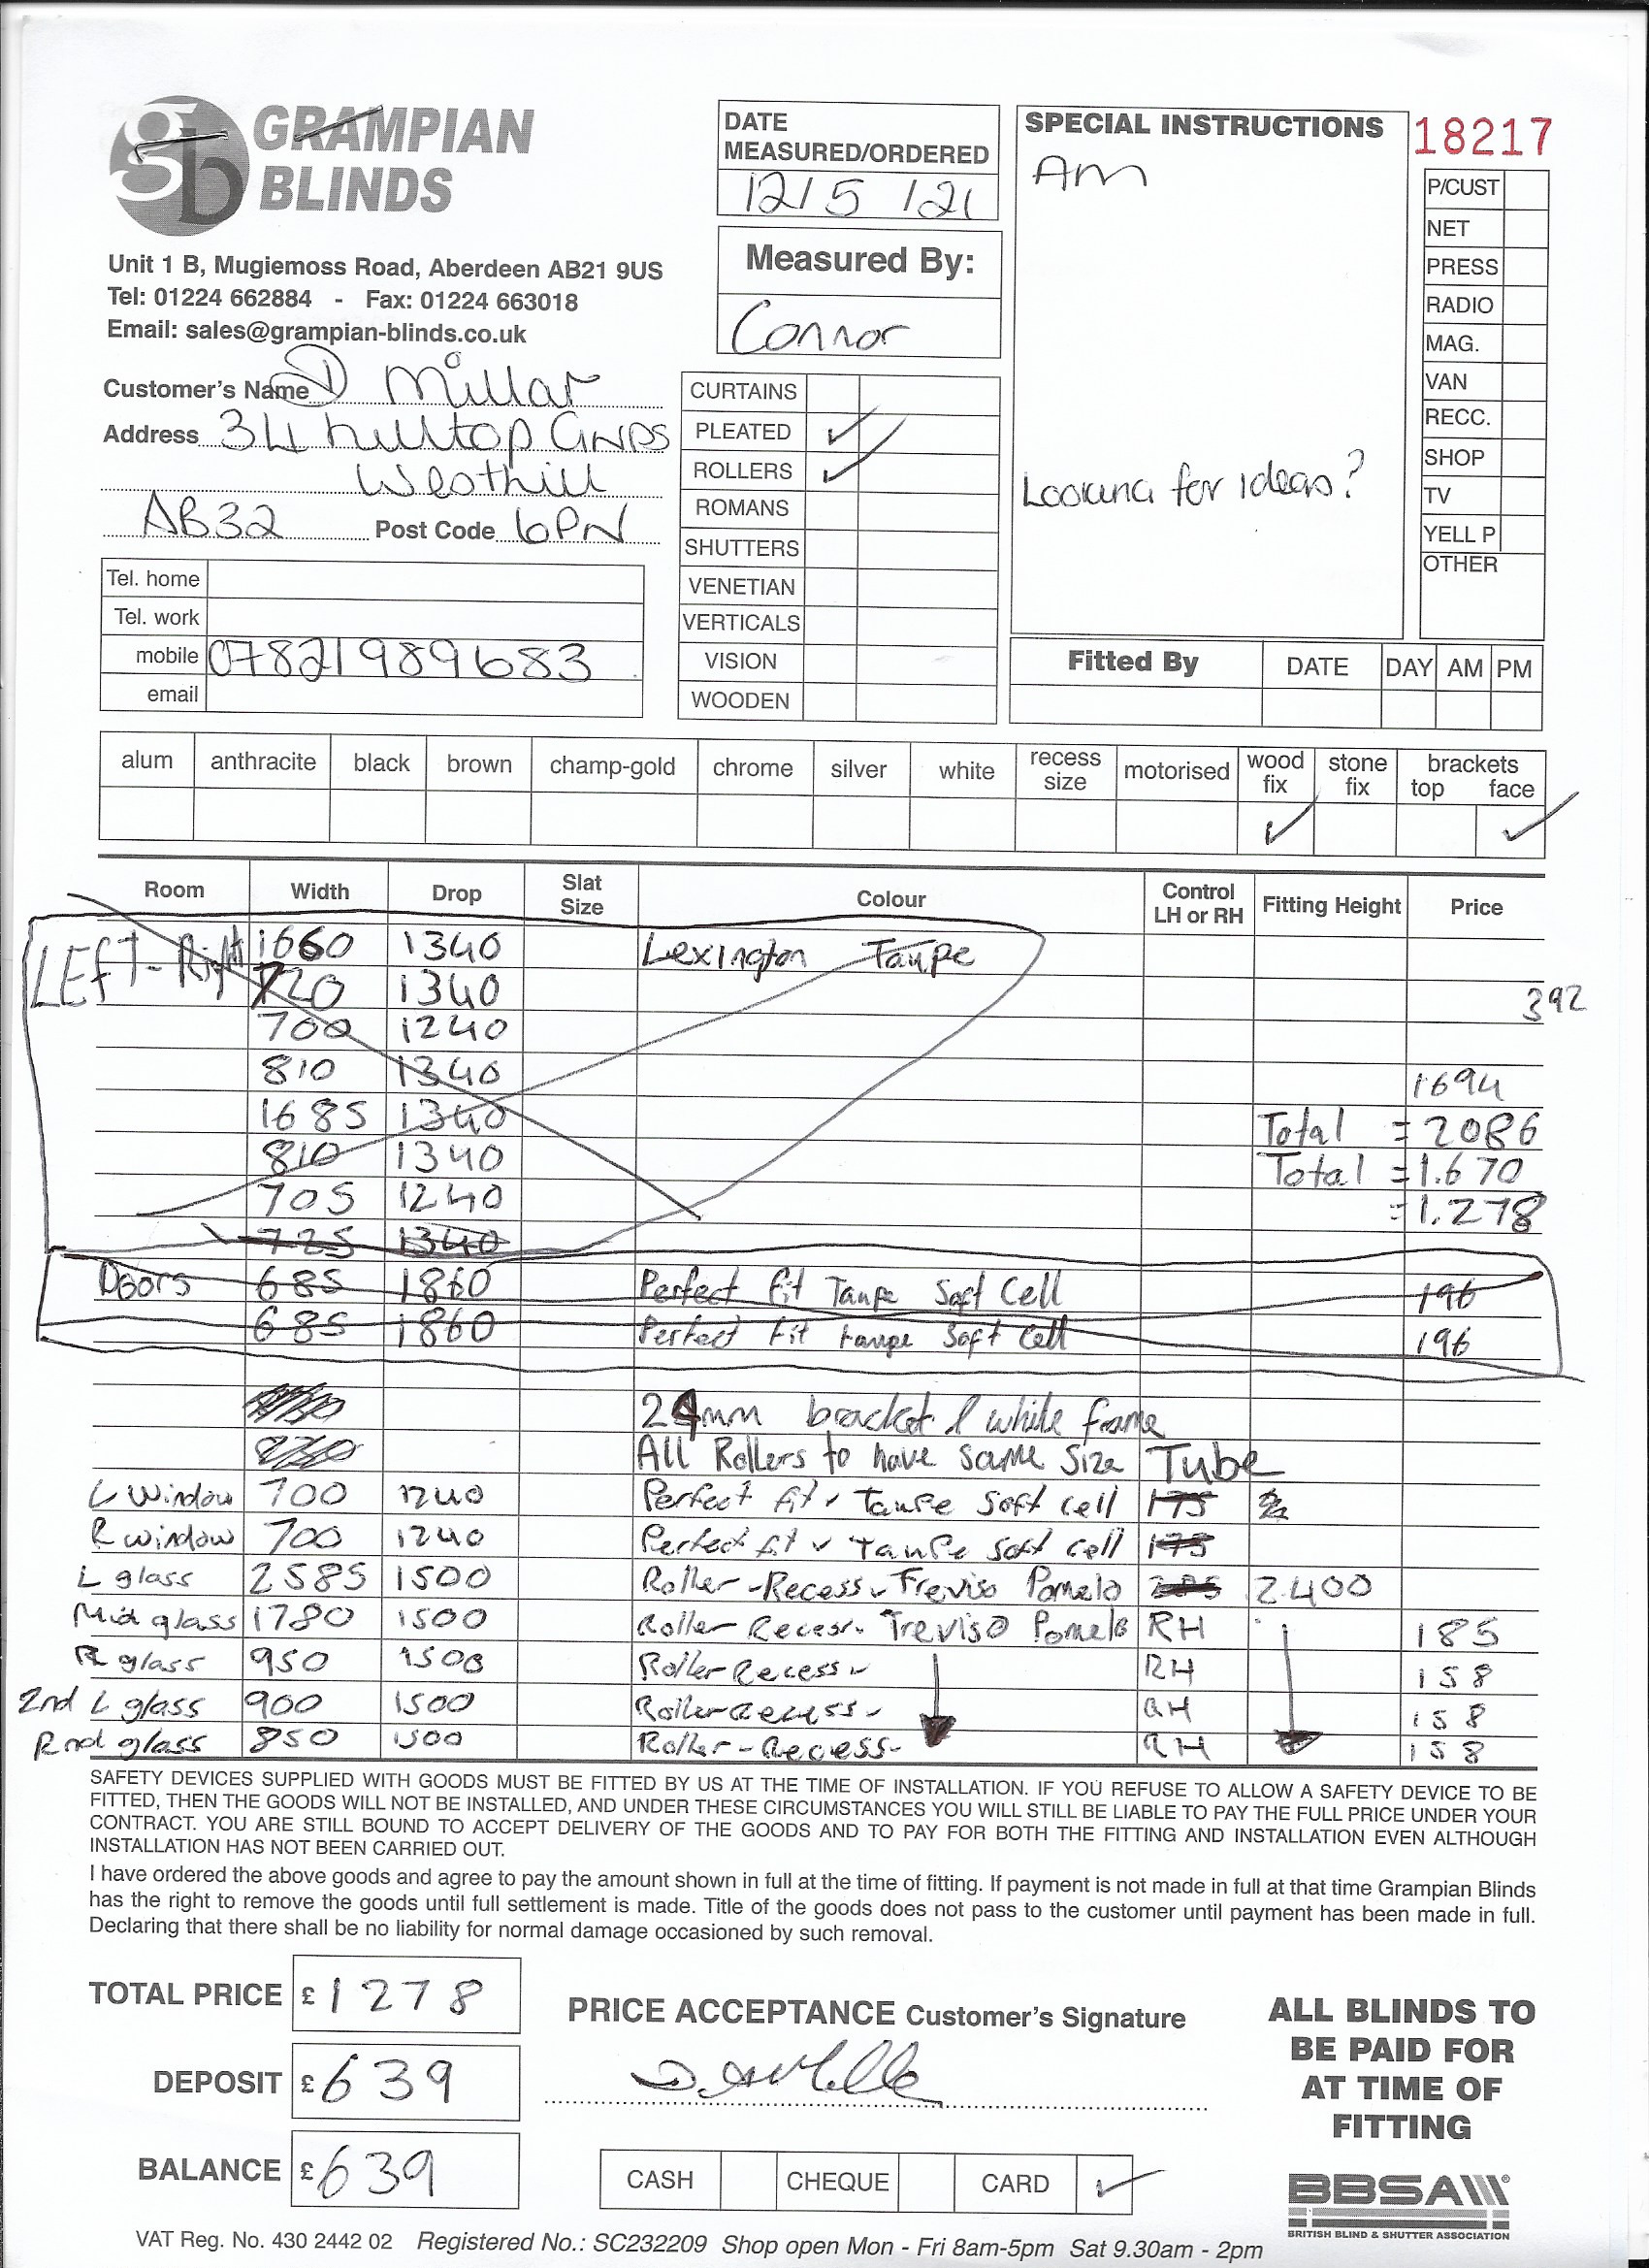 GRAMPIAN
BLINDS
Unit 1 B, Mugiemoss Road, Aberdeen AB21 9US
Tel: 01224 662884 - Fax: 01224 663018
Email: sales@grampian-blinds.co.uk
Customer's Name D Millar
Address 34 hilltop GNDS
Westhill
AB32 Post Code 6PN
Tel. home
Tel. work
mobile 07821989683
email
DATE
MEASURED/ORDERED
12/5/21
Measured By:
Connor
CURTAINS
PLEATED ✓
ROLLERS ✓
ROMANS
SHUTTERS
VENETIAN
VERTICALS
VISION
WOODEN
SPECIAL INSTRUCTIONS
Am
Looking for ideas?
18217
P/CUST
NET
PRESS
RADIO
MAG.
VAN
RECC.
SHOP
TV
YELL P
OTHER
Fitted By DATE DAY AM PM
alum anthracite black brown champ-gold chrome silver white recess size motorised wood fix stone fix brackets top face
✓ ✓
Room Width Drop Slat Size Colour Control LH or RH Fitting Height Price
LEFT-Right 1660 1340 Lexington Taupe
720 1340 392
700 1240
810 1340 1694
1685 1340 Total = 2086
810 1340 Total = 1.670
705 1240 = 1.278
725 1340
Doors 685 1860 Perfect fit Taupe Soft Cell 196
685 1860 Perfect Fit taupe Soft Cell 196
24mm bracket & white frame
All Rollers to have same size Tube
L window 700 1240 Perfect fit Taupe soft cell 175
R window 700 1240 Perfect fit Taupe soft cell 175
L glass 2585 1500 Roller-Recess Treviso Pomelo 2400
Mid glass 1780 1500 Roller-Recess Treviso Pomelo RH 185
R glass 950 1500 Roller Recess RH 158
2nd L glass 900 1500 Roller Recess RH 158
R nd glass 850 1500 Roller-Recess RH 158
SAFETY DEVICES SUPPLIED WITH GOODS MUST BE FITTED BY US AT THE TIME OF INSTALLATION. IF YOU REFUSE TO ALLOW A SAFETY DEVICE TO BE
FITTED, THEN THE GOODS WILL NOT BE INSTALLED, AND UNDER THESE CIRCUMSTANCES YOU WILL STILL BE LIABLE TO PAY THE FULL PRICE UNDER YOUR
CONTRACT. YOU ARE STILL BOUND TO ACCEPT DELIVERY OF THE GOODS AND TO PAY FOR BOTH THE FITTING AND INSTALLATION EVEN ALTHOUGH
INSTALLATION HAS NOT BEEN CARRIED OUT.
I have ordered the above goods and agree to pay the amount shown in full at the time of fitting. If payment is not made in full at that time Grampian Blinds
has the right to remove the goods until full settlement is made. Title of the goods does not pass to the customer until payment has been made in full.
Declaring that there shall be no liability for normal damage occasioned by such removal.
TOTAL PRICE £1278
DEPOSIT £639
BALANCE £639
PRICE ACCEPTANCE Customer's Signature
CASH CHEQUE CARD ✓
ALL BLINDS TO
BE PAID FOR
AT TIME OF
FITTING
BBSA
BRITISH BLIND & SHUTTER ASSOCIATION
VAT Reg. No. 430 2442 02 Registered No.: SC232209 Shop open Mon - Fri 8am-5pm Sat 9.30am - 2pm